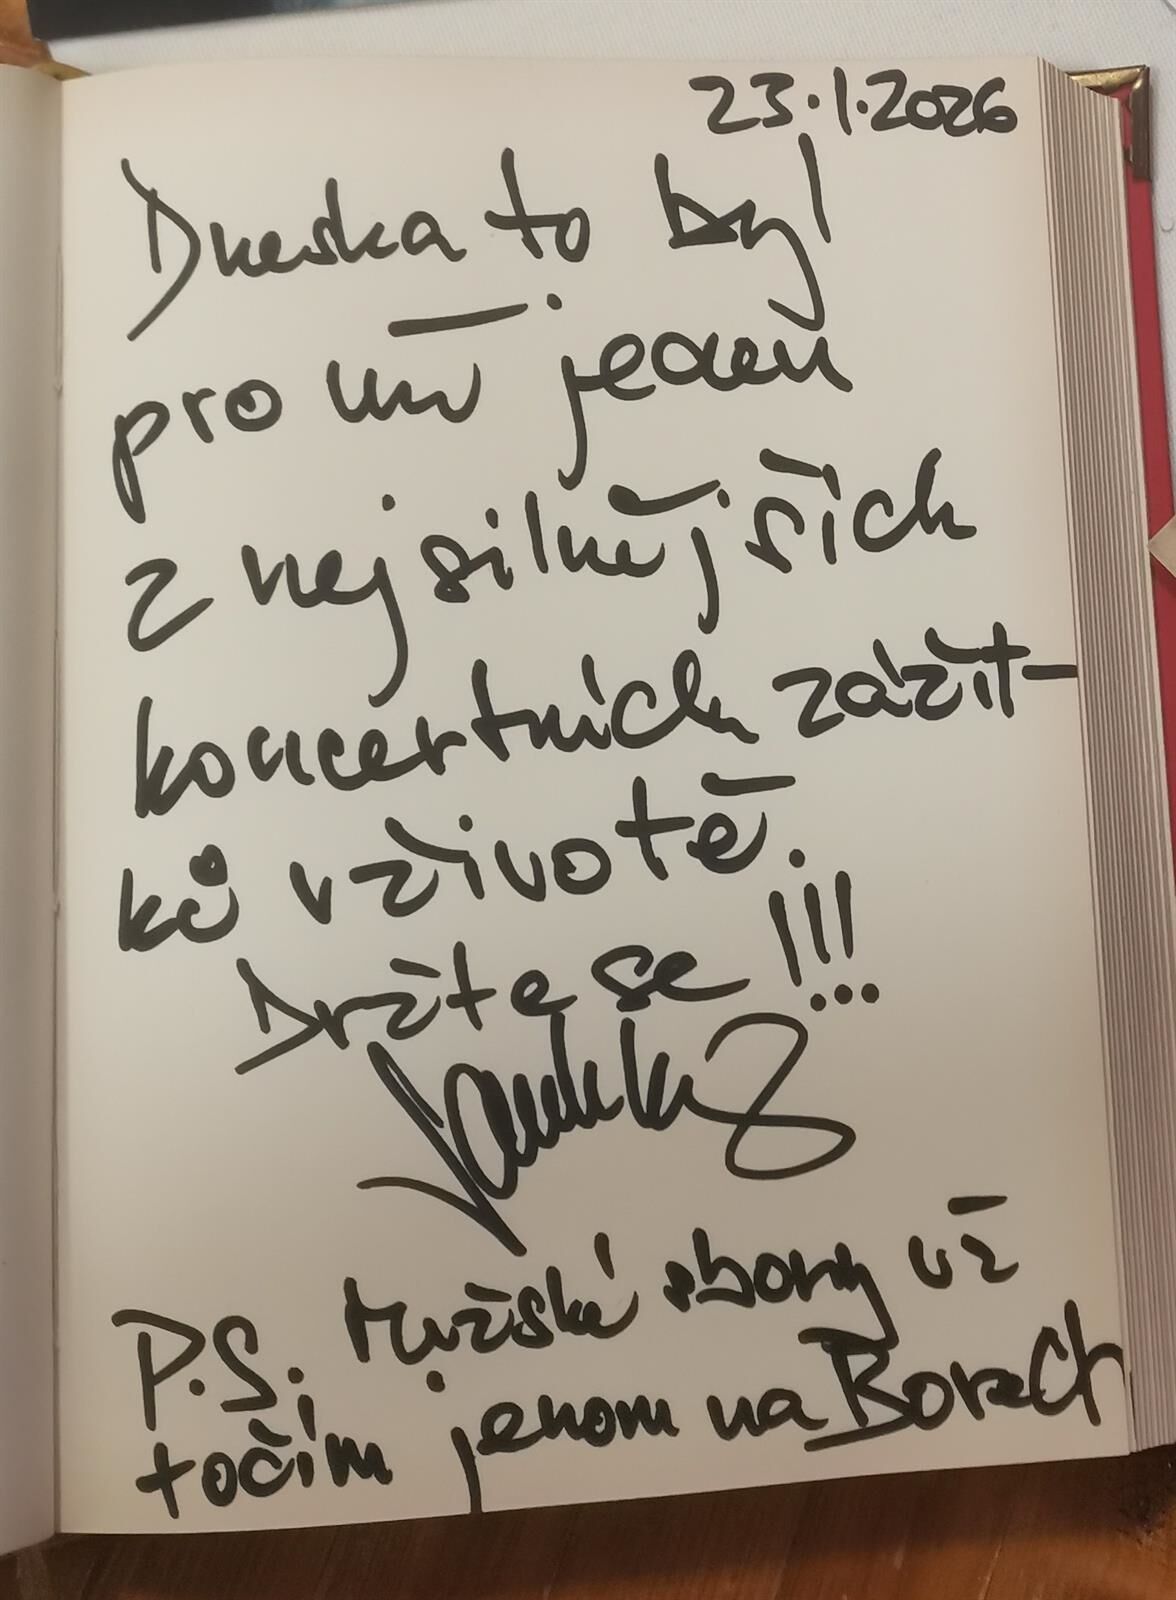 23.1.2026
Dneska to byl
pro mě jeden
z nejsilnějších
koncertních zážit-
ků v životě.
Držte se!!!
P.S. Mužské sbory už
točím jenom na Borech